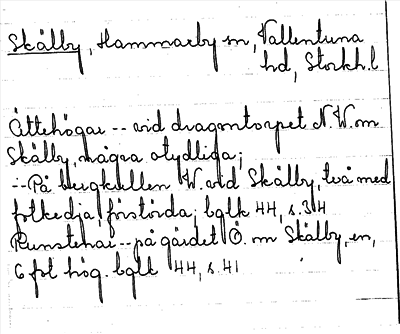 Skålby, Hammarby sn, Vallentuna
hd, Storkh.l
Ättehögar -- vid dragontorpet N.W. om
Skålby, några otydliga;
-:- På bergkullen W. vid Skålby, två med
fotkedja, förstörda; bglk 44, s. 34
Runstenar -- på gärdet Ö. om Skålby, en,
6 fot hög. bglk 44, s. 41